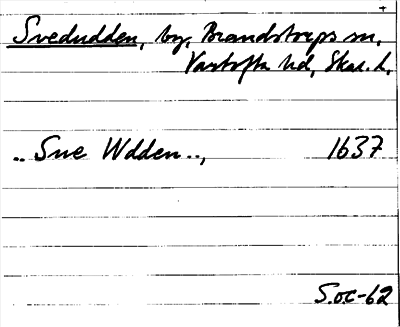 +
Svedudden, by, Brandstorps sn,
Vartofta hd, Skar. l.
.. Sue Wdden ..,
1637
S.oc-62